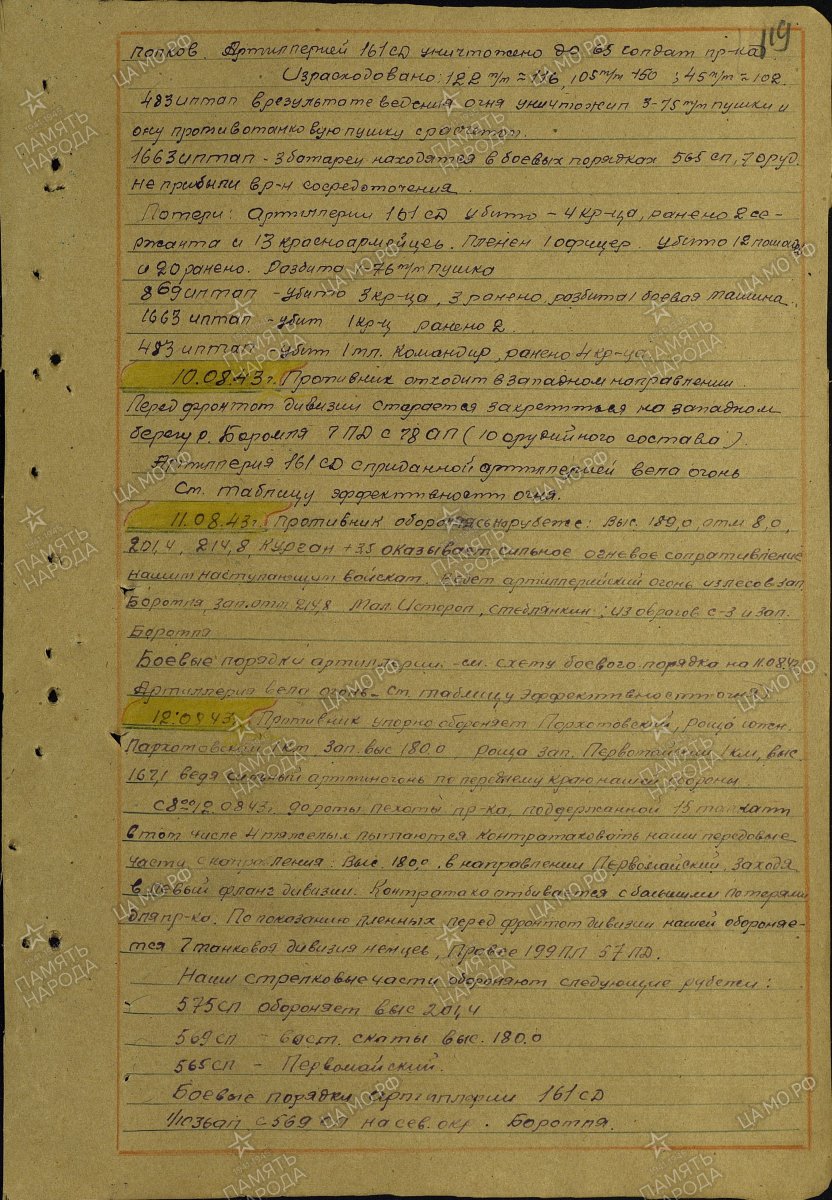 119
полков. Артиллерией 161 сд уничтожено до 65 солдат пр-ка.
Израсходовано: 122 м/м = 116, 105 м/м - 150; 45 м/м = 102.
483 иптап в результате ведения огня уничтожил 3-75 м/м пушки и
одну противотанковую пушку с расчетом.
1663 иптап - 3 батареи находятся в боевых порядках 565 сп, 7 оруд.
не прибыли в р-н сосредоточения.
Потери: Артиллерии 161 сд убито - 4 кр-ца, ранено 2 се-
ржанта и 13 красноармейцев. Пленен 1 офицер. убито 12 лошадей
и 20 ранено. Разбита 1-76 м/м пушка
869 иптап - убито 3 кр-ца, 3 ранено, разбита 1 боевая машина.
1663 иптап - убит 1 кр-ц ранено 2.
483 иптап - убит 1 мл. командир, ранено 4 кр-ца
10.08.43 г. Противник отходит в западном направлении.
Перед фронтом дивизии старается закрепиться на западном
берегу р. Боромля 7 ПД с 78 АП (10 орудийного состава).
Артиллерия 161 СД с приданной артиллерией вела огонь
См. таблицу эффективности огня.
11.08.43 г. Противник обороняясь на рубеже: выс. 189,0, отм 8,0,
201,4, 214,8, курган +3,5 оказывает сильное огневое сопративление
нашим наступающим войскам. Ведет артиллерийский огонь из лесов зап.
Боромля, зап. отм 214,8 Мал. Истороп, Стеблянкин; из оврагов с-з и зап.
Боромля
Боевые порядки артиллерии - см. схему боевого порядка на 11.08.43
Артиллерия вела огонь - См. таблицу эффективности огня.
12.08.43 г. Противник упорно обороняет Пархомовский, роща южн.
Пархомовский 1 км зап. выс 180.0 роща зап. Первомайский 1 км, выс.
167,1 ведя сильный артминогонь по переднему краю нашей обороны.
С 8.00 12.08.43 г. до роты пехоты пр-ка, поддержанной 15 танками
в том числе 4 тяжелых пытаются контратаковать наши передовые
части с направления: Выс. 180,0. в направлении Первомайский, заходя
в левый фланг дивизии. Контратака отбивается с большими потерями
для пр-ка. По показанию пленных перед фронтом дивизии нашей обороняе-
тся 7 танковая дивизия немцев, Правее 199 ПП 57 ПД.
Наши стрелковые части обороняют следующие рубежи:
575 СП обороняет выс 201,4
569 сп - вост. скаты выс. 180.0
565 СП - Первомайский.
Боевые порядки артиллерии 161 СД
1/1036 ап с 569 СП на сев. окр. Боромля.